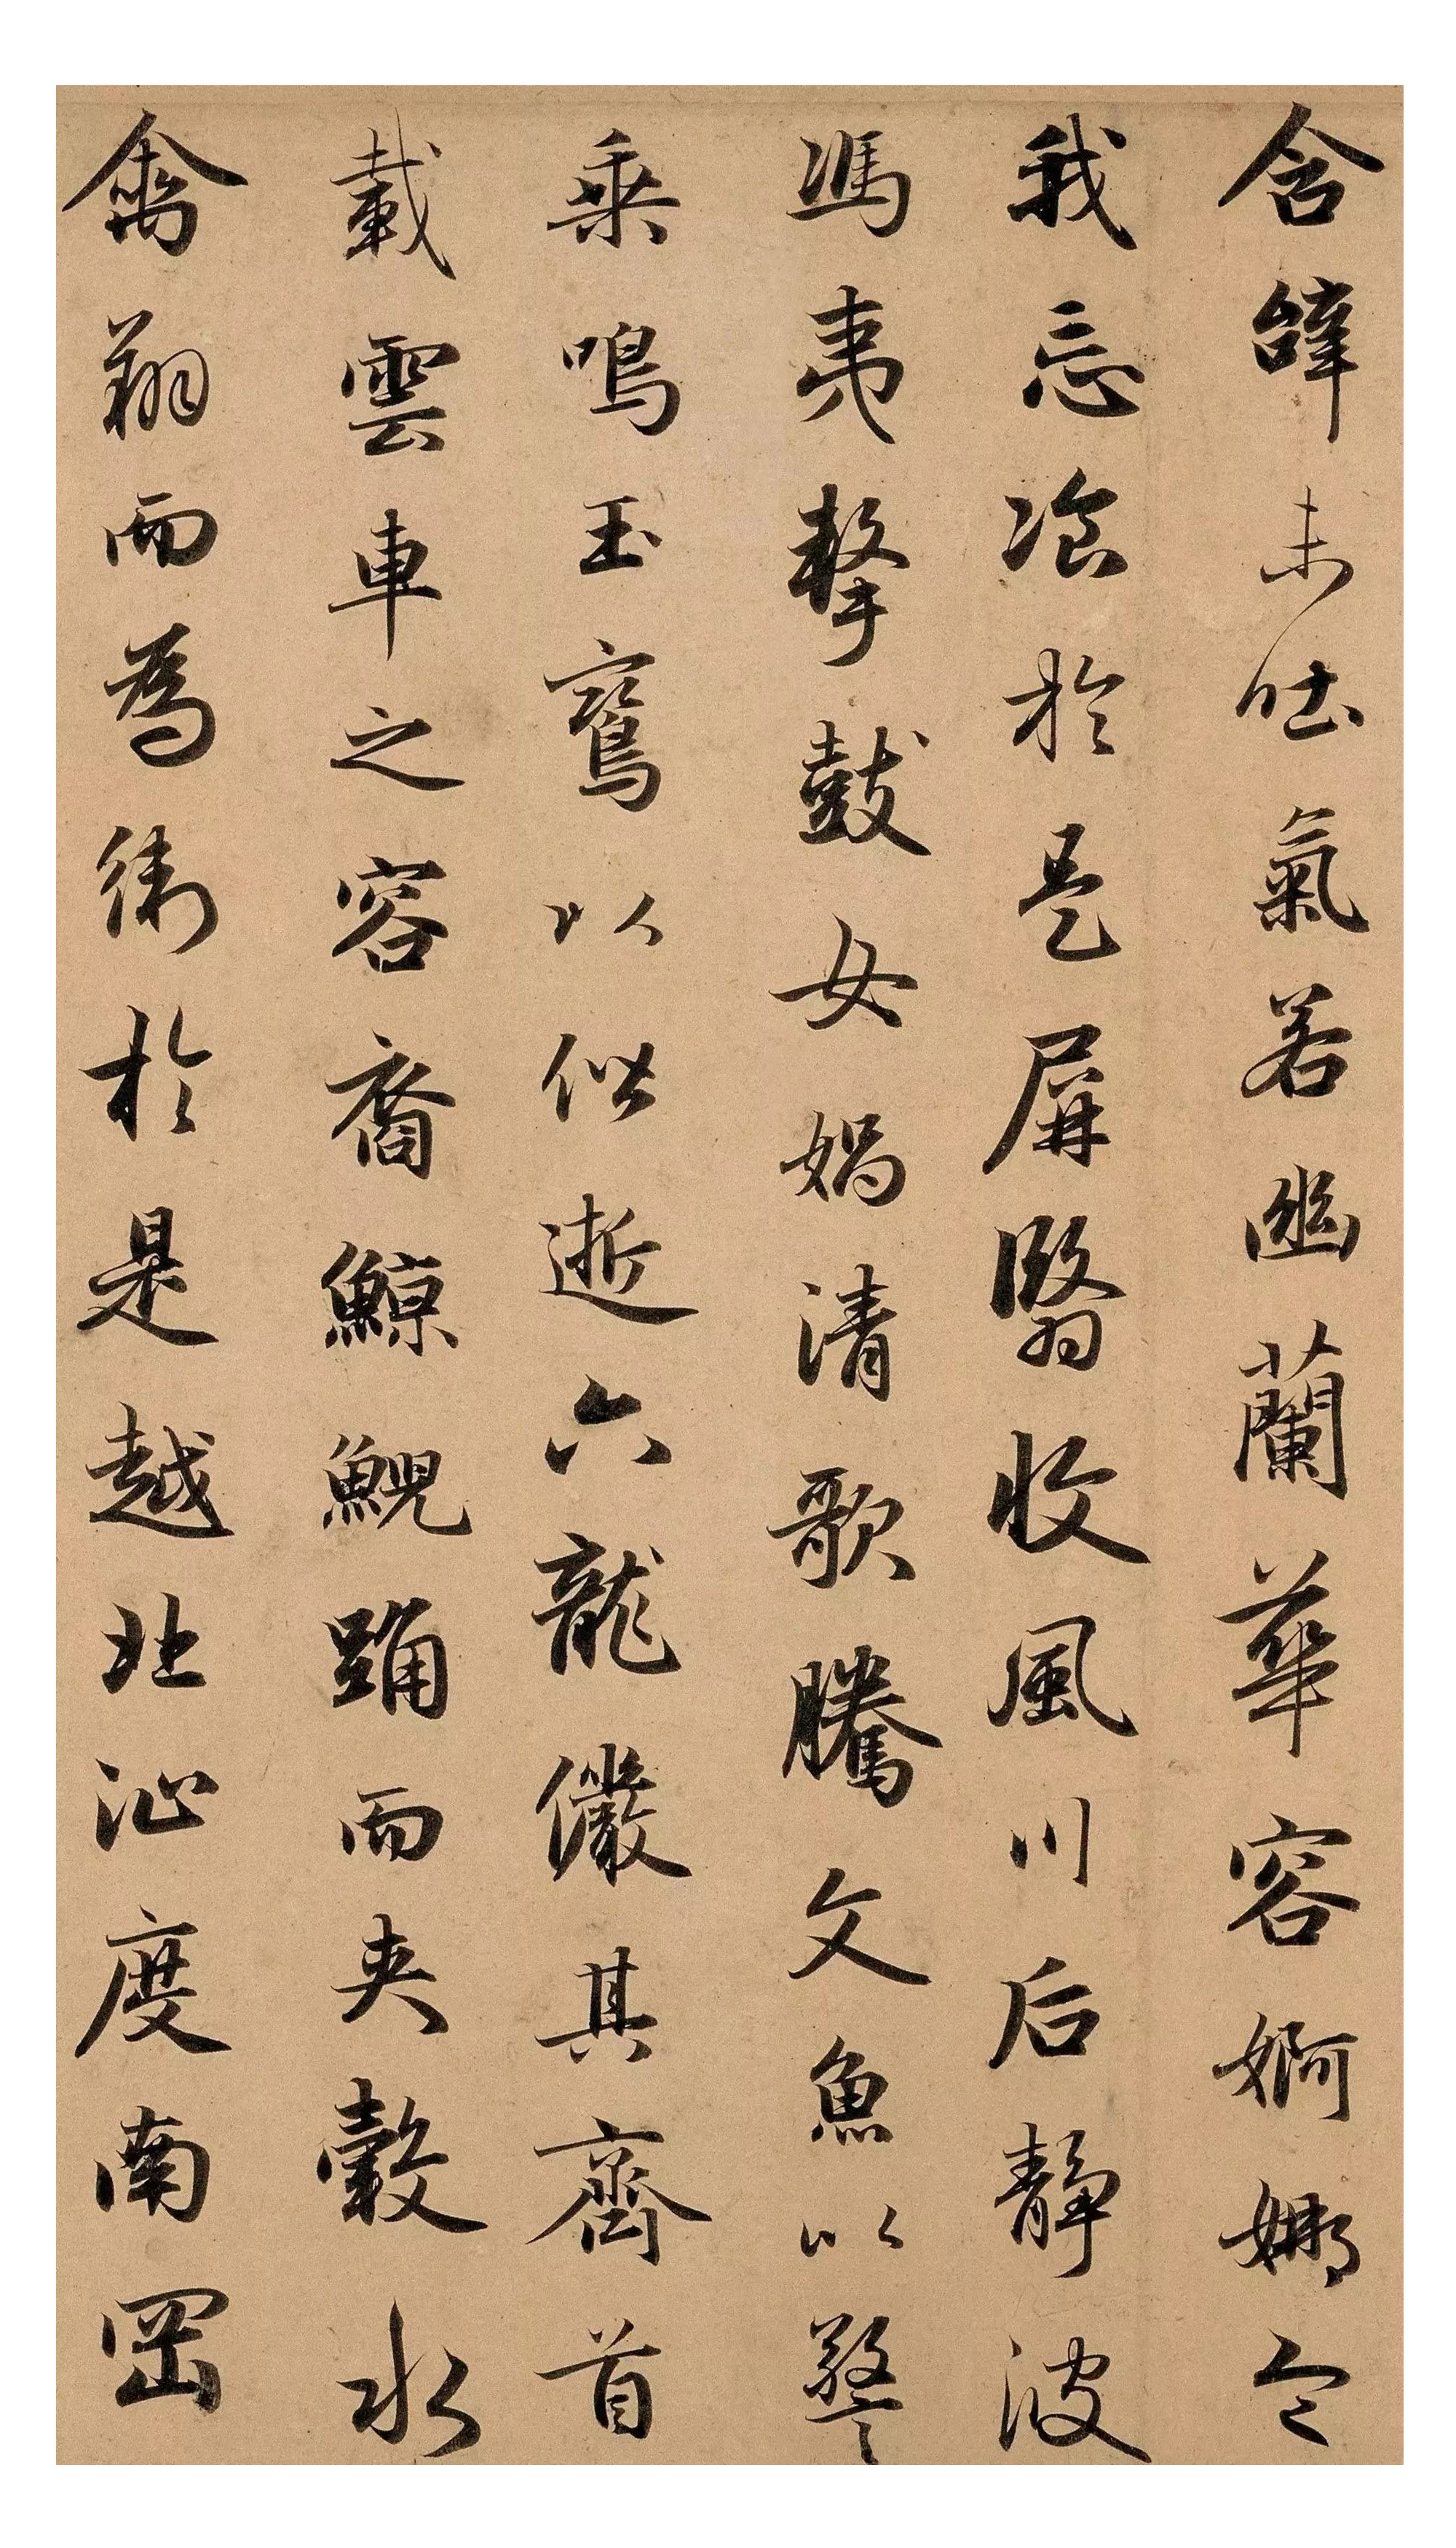 含辭未吐氣若幽蘭華容婀娜令
我忘飡於是屏翳收風川后靜波
馮夷擊鼓女媧清歌騰文魚以警
乘鳴玉鸞以偕逝六龍儼其齊首
載雲車之容裔鯨鯢踊而夾轂水
禽翔而為衛於是越北沚度南罡